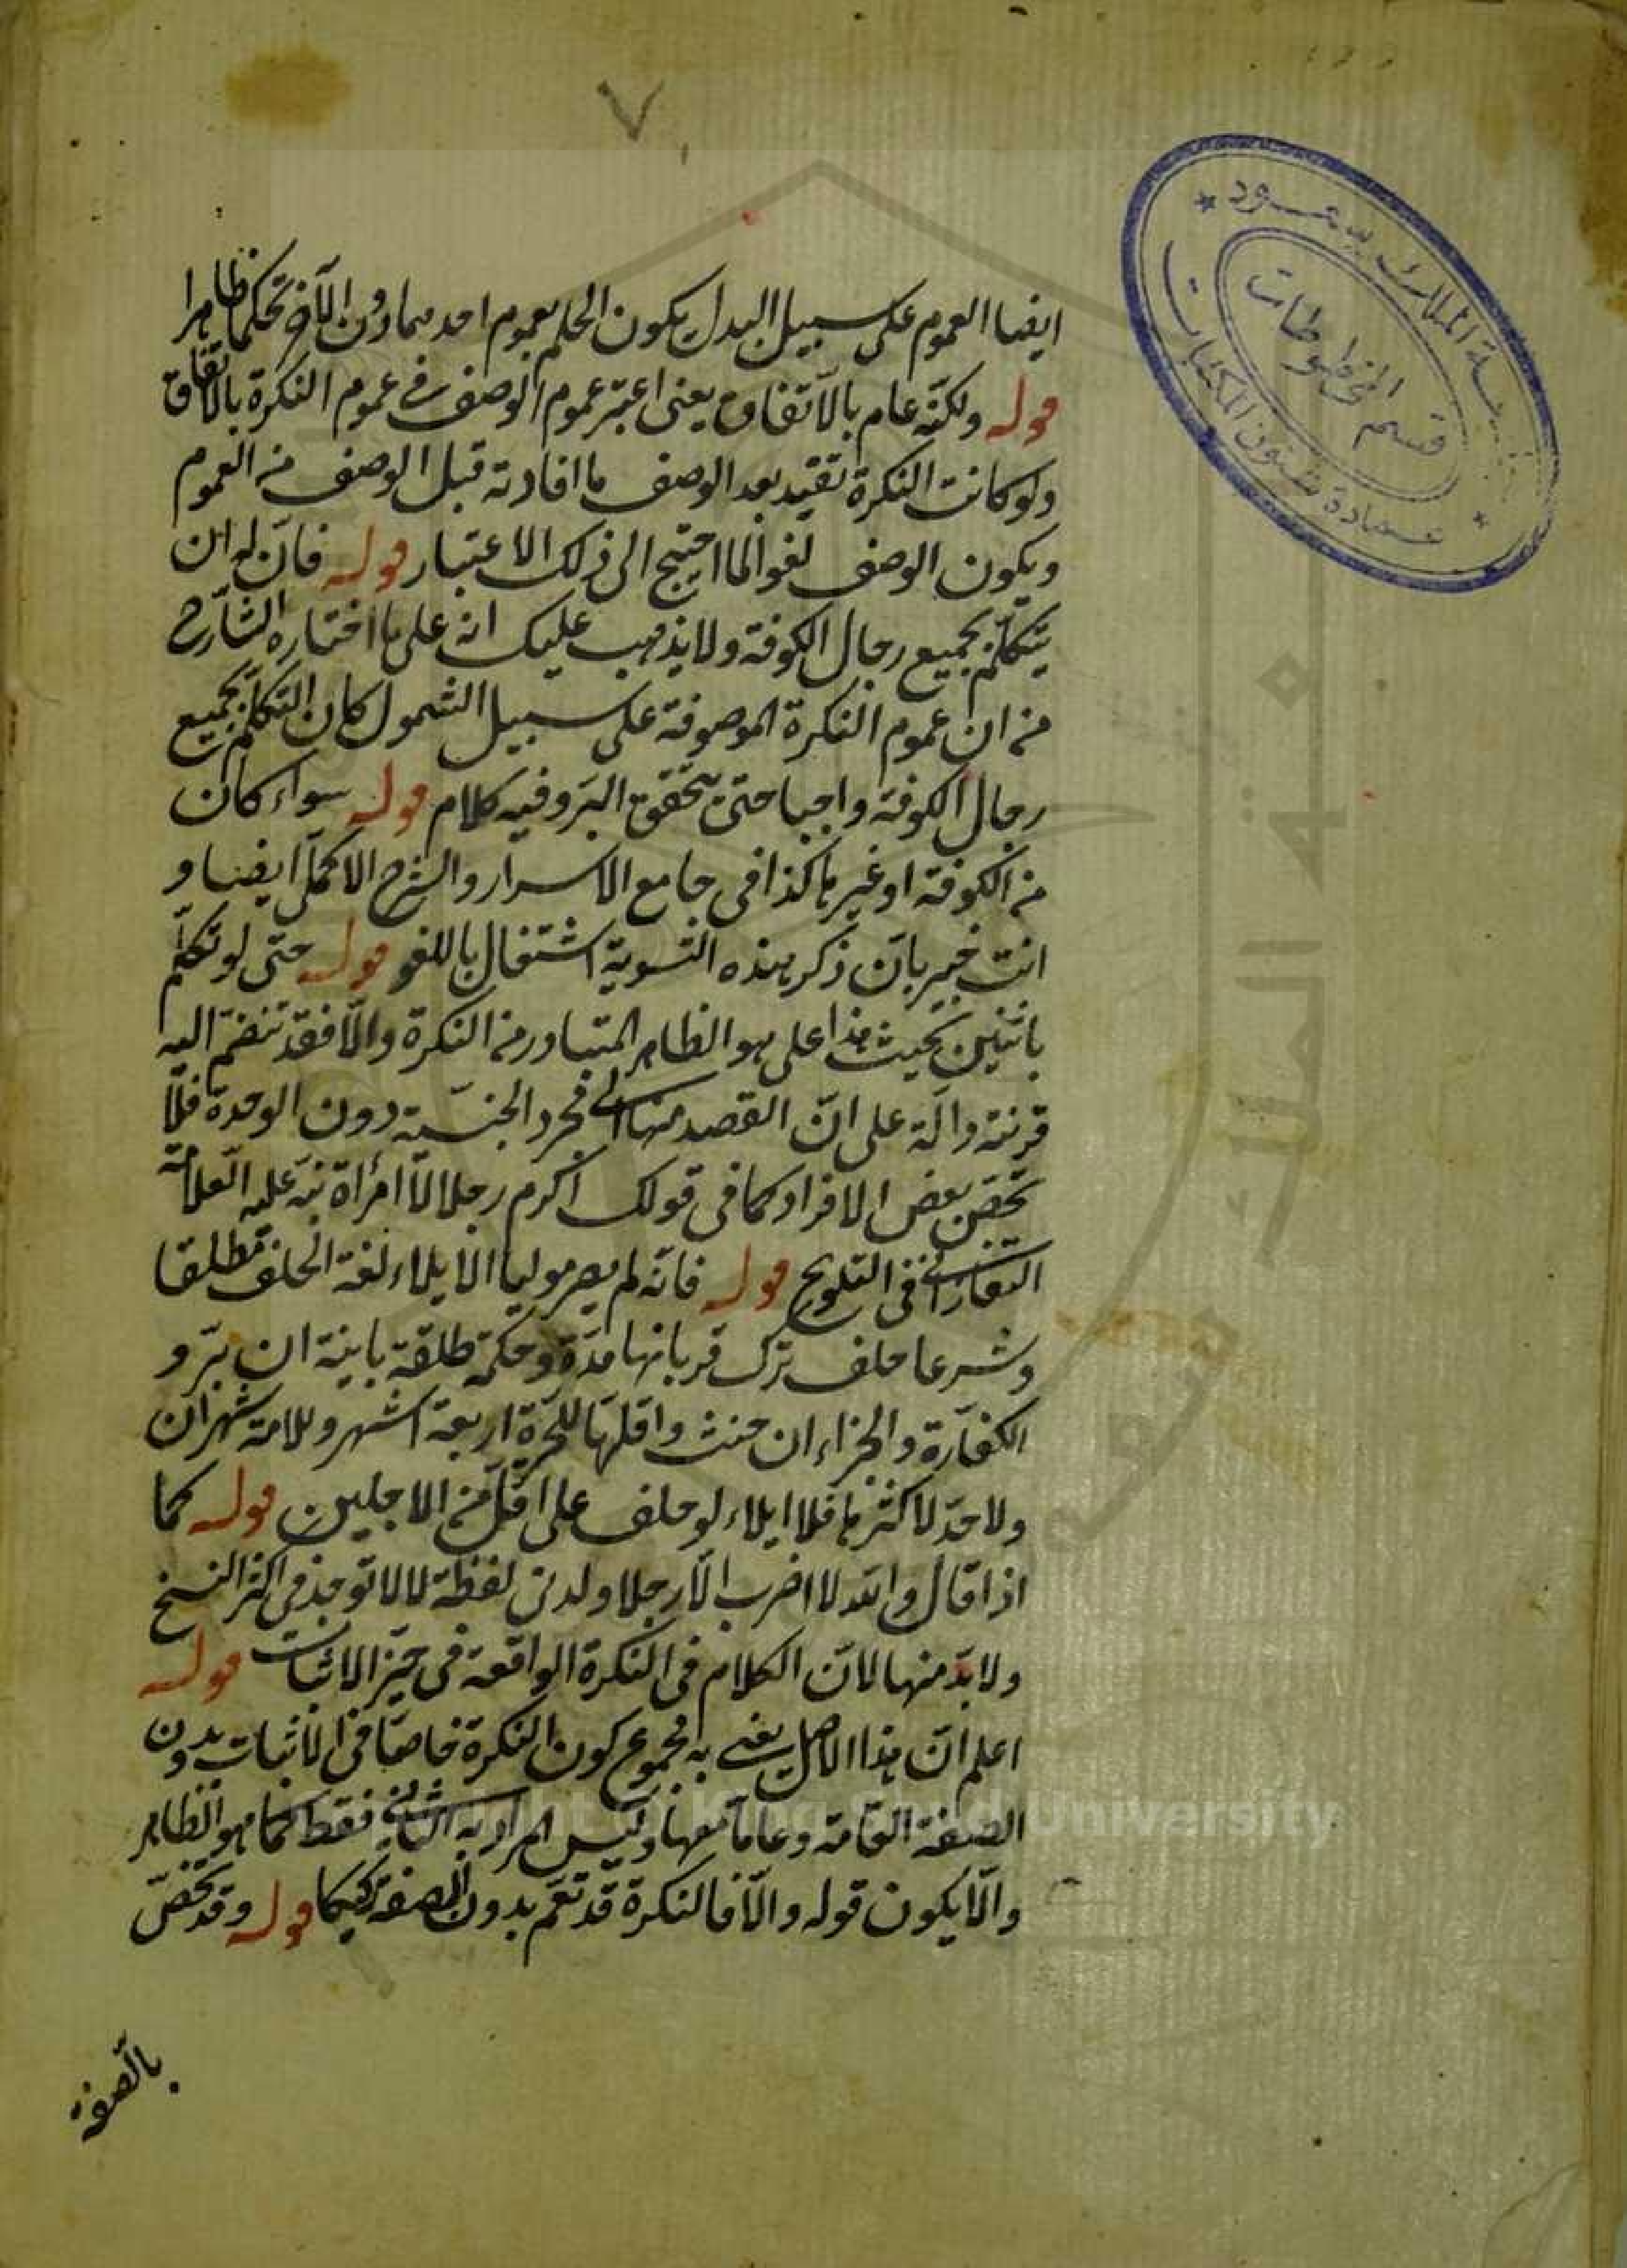 ٧
جامعة الملك سعود
قسم المخطوطات
عمادة شئون المكتبات
ايضا العموم على سبيل البدل يكون الحكم بعموم احدهما دون الآخر تحكما ظاهرا
قوله ولكنّه عام بالاتّفاق يعنى اعتبر عموم الوصف فى عموم النكرة بالاتفاق
ولو كانت النكرة تفيد بعد الوصف ما افادته قبل الوصف من العموم
ويكون الوصف لغوا لما احتيج الى ذلك الاعتبار قوله فانّ له ان
يتكلّم بجميع رجال الكوفة ولا يذهب عليك انه على ما اختاره الشارح
من ان عموم النكرة الموصوفة على سبيل الشمول كان التكلم بجميع
رجال الكوفة واجبا حتى يتحقق البرّ وفيه كلام قوله سواء كان
من الكوفة او غيرها كذا فى جامع الاسرار والشرح الاكملى ايضا و
انت خبير بانّ ذكر هذه التسوية اشتغال باللغو قوله حتى لو تكلّم
باثنين بحيث هذا على هو الظاهر المتبادر من النكرة والّا فقد تنضم اليه
قرينة دالّة على انّ القصد منها الى مجرد الجنسيّة دون الوحدة فلا
تختصّ ببعض الافراد كما فى قولك اكرم رجلا لا امرأة نبّه عليه العلامة
التفتازانى فى التلويح قوله فانّه لم يصر موليا الايلاء لغة الحلف مطلقا
وشرعا حلف بترك قربانها مدّة وحكمه طلقة باينة ان برّ و
الكفّارة والجزاء ان حنث واقلها للحرّة اربعة اشهر وللامة شهران
ولا حدّ لاكثرها فلا ايلاء لو حلف على اقلّ من الاجلين قوله كما
اذا قال والله لا اضرب الّا رجلا ولدنى لفظة لا لا توجد فى اكثر النسخ
ولا بدّ منها لانّ الكلام فى النكرة الواقعة فى حيّز الاثبات قوله
اعلم انّ هذا الاصل يعنى به مجموع كون النكرة خاصّا فى الاثبات بدون
الصفة العامّة وعاما معها وليس المراد به الثانى فقط كما هو الظاهر
والّا يكون قوله والّا فالنكرة قد تعمّ بدون الصفة ركيكا قوله وقد تخصّ
بالصفة
Copyright © King Saud University